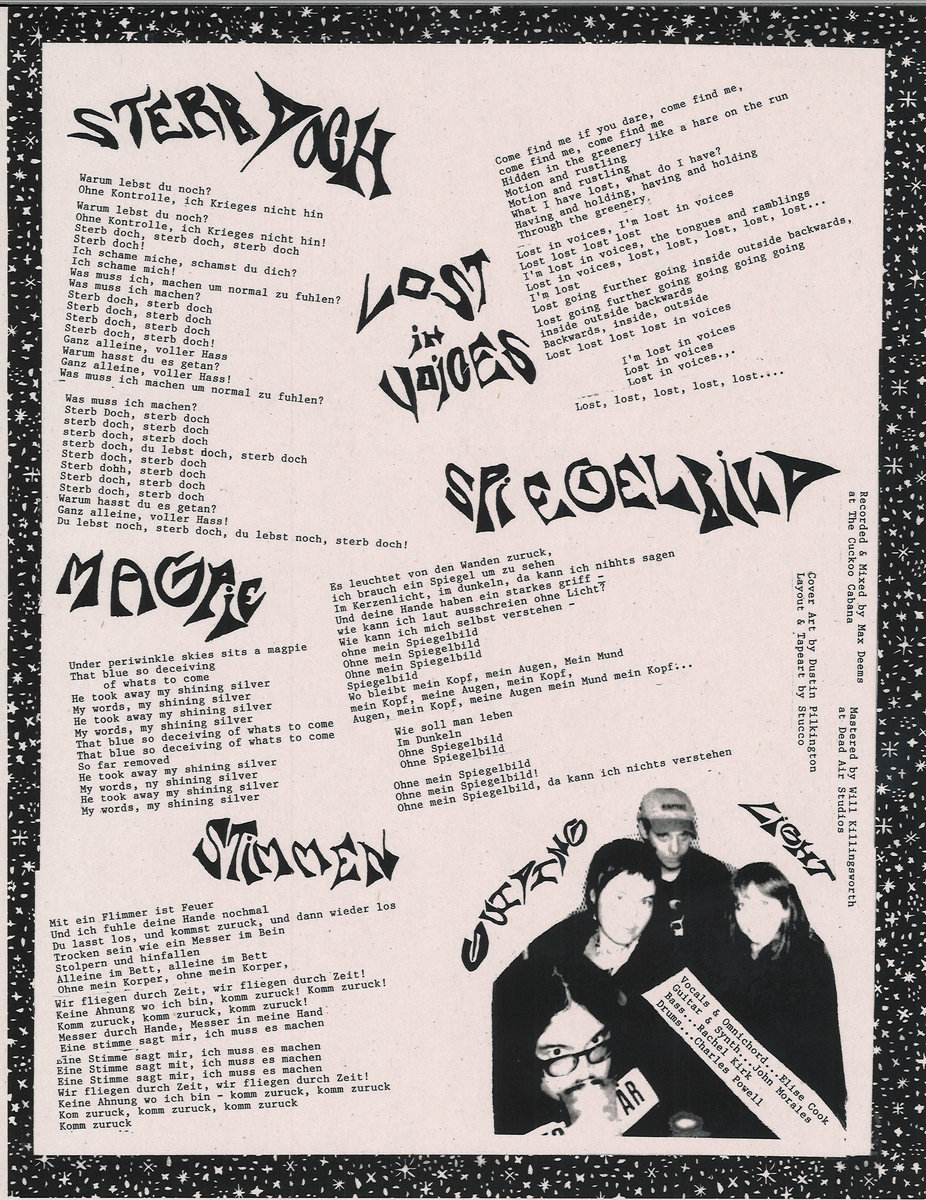 STERB DOCH
Warum lebst du noch?
Ohne Kontrolle, ich Krieges nicht hin
Warum lebst du noch?
Ohne Kontrolle, ich Krieges nicht hin!
Sterb doch, sterb doch, sterb doch
Sterb doch!
Ich schame miche, schamst du dich?
Ich schame mich!
Was muss ich, machen um normal zu fuhlen?
Was muss ich machen?
Sterb doch, sterb doch
Sterb doch, sterb doch
Sterb doch, sterb doch
Sterb doch, sterb doch!
Ganz alleine, voller Hass
Warum hasst du es getan?
Ganz alleine, voller Hass!
Was muss ich machen um normal zu fuhlen?
Was muss ich machen?
Sterb Doch, sterb doch
sterb doch, sterb doch
sterb doch, sterb doch
sterb doch, du lebst doch, sterb doch
Sterb doch, sterb doch
Sterb dohh, sterb doch
Sterb doch, sterb doch
Sterb doch, sterb doch
Warum hasst du es getan?
Ganz alleine, voller Hass!
Du lebst noch, sterb doch, du lebst noch, sterb doch!
LOST
in
VOICES
Come find me if you dare, come find me,
come find me, come find me
Hidden in the greenery like a hare on the run
Motion and rustling
Motion and rustling
What I have lost, what do I have?
Having and holding, having and holding
Through the greenery.
Lost in voices, I'm lost in voices
Lost lost lost lost
I'm lost in voices, the tongues and ramblings
Lost in voices, lost, lost, lost, lost, lost...
I'm lost
Lost going further going inside outside backwards,
lost going further going going going going
inside outside backwards
Backwards, inside, outside
Lost lost lost lost in voices
I'm lost in voices
Lost in voices
Lost in voices.,.
Lost, lost, lost, lost, lost....
SPIEGELBILD
Es leuchtet von den Wanden zuruck,
ich brauch ein Spiegel um zu sehen
Im Kerzenlicht, im dunkeln, da kann ich nihhts sagen
Und deine Hande haben ein starkes griff -
wie kann ich laut ausschreien ohne Licht?
Wie kann ich mich selbst verstehen -
ohne mein Spiegelbild
Ohne mein Spiegelbild
Ohne mein Spiegelbild
Spiegelbild
Wo bleibt mein Kopf, mein Augen, Mein Mund
mein Kopf, meine Augen, mein Kopf,
Augen, mein Kopf, meine Augen mein Mund mein Kopf...
Wie soll man leben
Im Dunkeln
Ohne Spiegelbild
Ohne Spiegelbild
Ohne mein Spiegelbild
Ohne mein Spiegelbild!
Ohne mein Spiegelbild, da kann ich nichts verstehen
MAGPIE
Under periwinkle skies sits a magpie
That blue so deceiving
of whats to come
He took away my shining silver
My words, my shining silver
He took away my shining silver
My words, my shining silver
That blue so deceiving of whats to come
That blue so deceiving of whats to come
So far removed
He took away my shining silver
My words, ny shining silver
He took away my shining silver
My words, my shining silver
STIMMEN
Mit ein Flimmer ist Feuer
Und ich fuhle deine Hande nochmal
Du lasst los, und kommst zuruck, und dann wieder los
Trocken sein wie ein Messer im Bein
Stolpern und hinfallen
Alleine im Bett, alleine im Bett
Ohne mein Korper, ohne mein Korper,
Wir fliegen durch Zeit, wir fliegen durch Zeit!
Keine Ahnung wo ich bin, komm zuruck! Komm zuruck!
Komm zuruck, komm zuruck, komm zuruck!
Messer durch Hande, Messer in meine Hand
Eine stimme sagt mir, ich muss es machen
Eine Stimme sagt mir, ich muss es machen
Eine Stimme sagt mit, ich muss es machen
Eine Stimme sagt mir, ich muss es machen
Wir fliegen durch Zeit, wir fliegen durch Zeit!
Keine Ahnung wo ich bin - komm zuruck, komm zuruck
Kom zuruck, komm zuruck, komm zuruck
Komm zuruck
Recorded & Mixed by Max Deems
at The Cuckoo Cabana
Mastered by Will Killingsworth
at Dead Air Studios
Cover Art by Dustin Pilkington
Layout & Tapeart by Stucco
CUTTING
LIGHT
Vocals & Omnichord...Elise Cook
Guitar & Synth...John Morales
Bass...Rachel Kirk
Drums...Charles Powell
AR